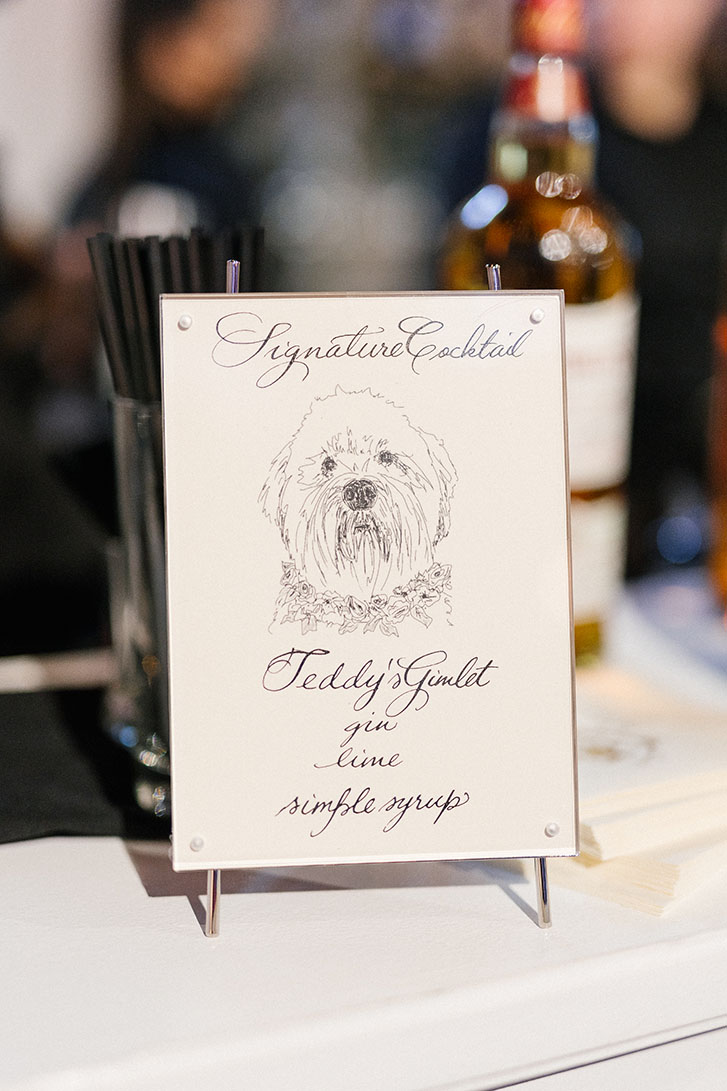 Signature Cocktail
Teddy's Gimlet
gin
lime
simple syrup